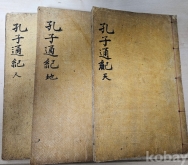 孔子通紀 天
孔子通紀 地
孔子通紀 人
kobay